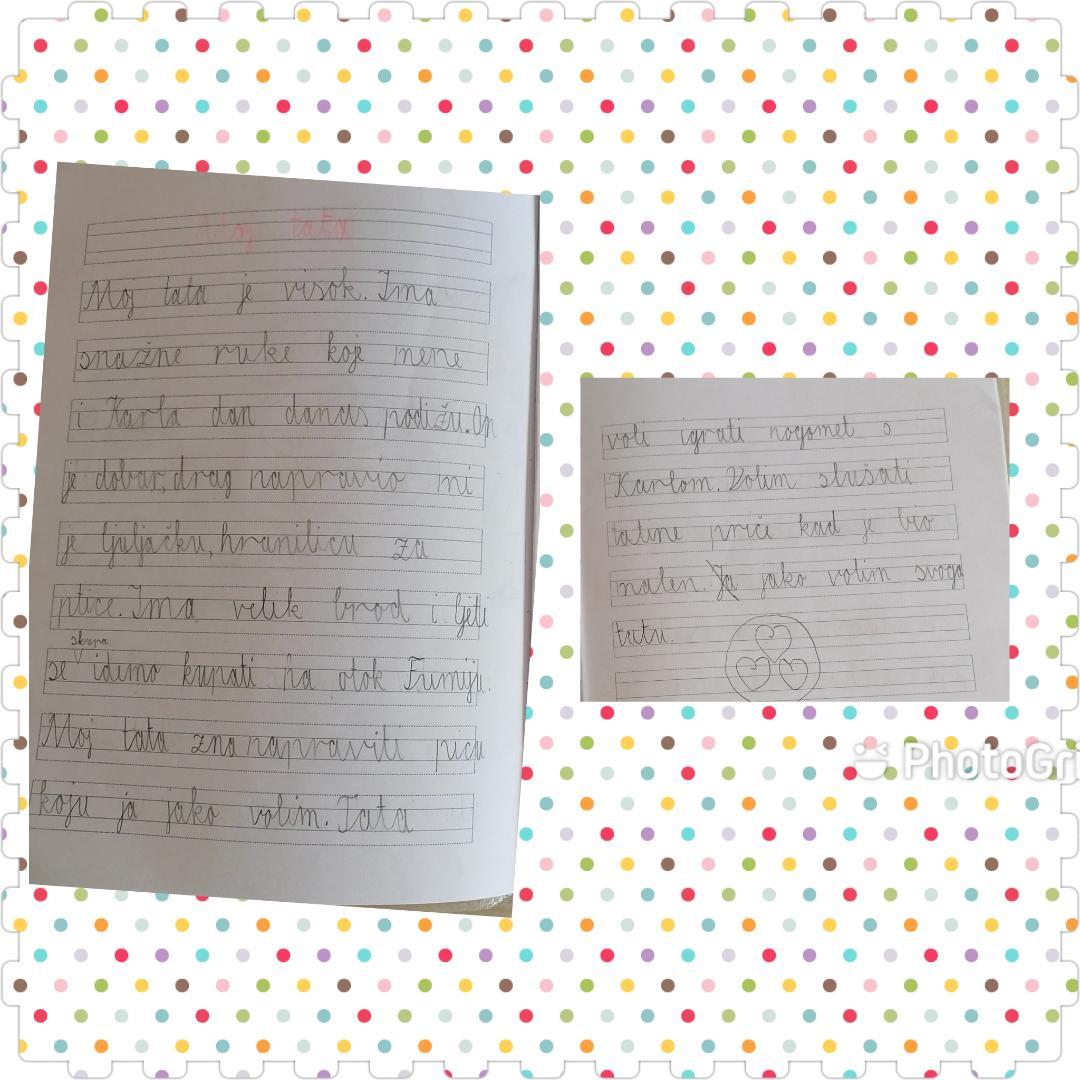 Moj tata
Moj tata je visok. Ima
snažne ruke koje mene
i Karla dan danas podižu. On
je dobar, drag napravio mi
je ljuljačku, hranilicu za
ptice. Ima velik brod i ljeti
skupa
se idemo kupati na otok Fumiju.
Moj tata zna napraviti picu
koju ja jako volim. Tata
voli igrati nogomet s
Karlom. Volim slušati
tatine priče kad je bio
malen. Ja jako volim svoga
tatu.
PhotoGri